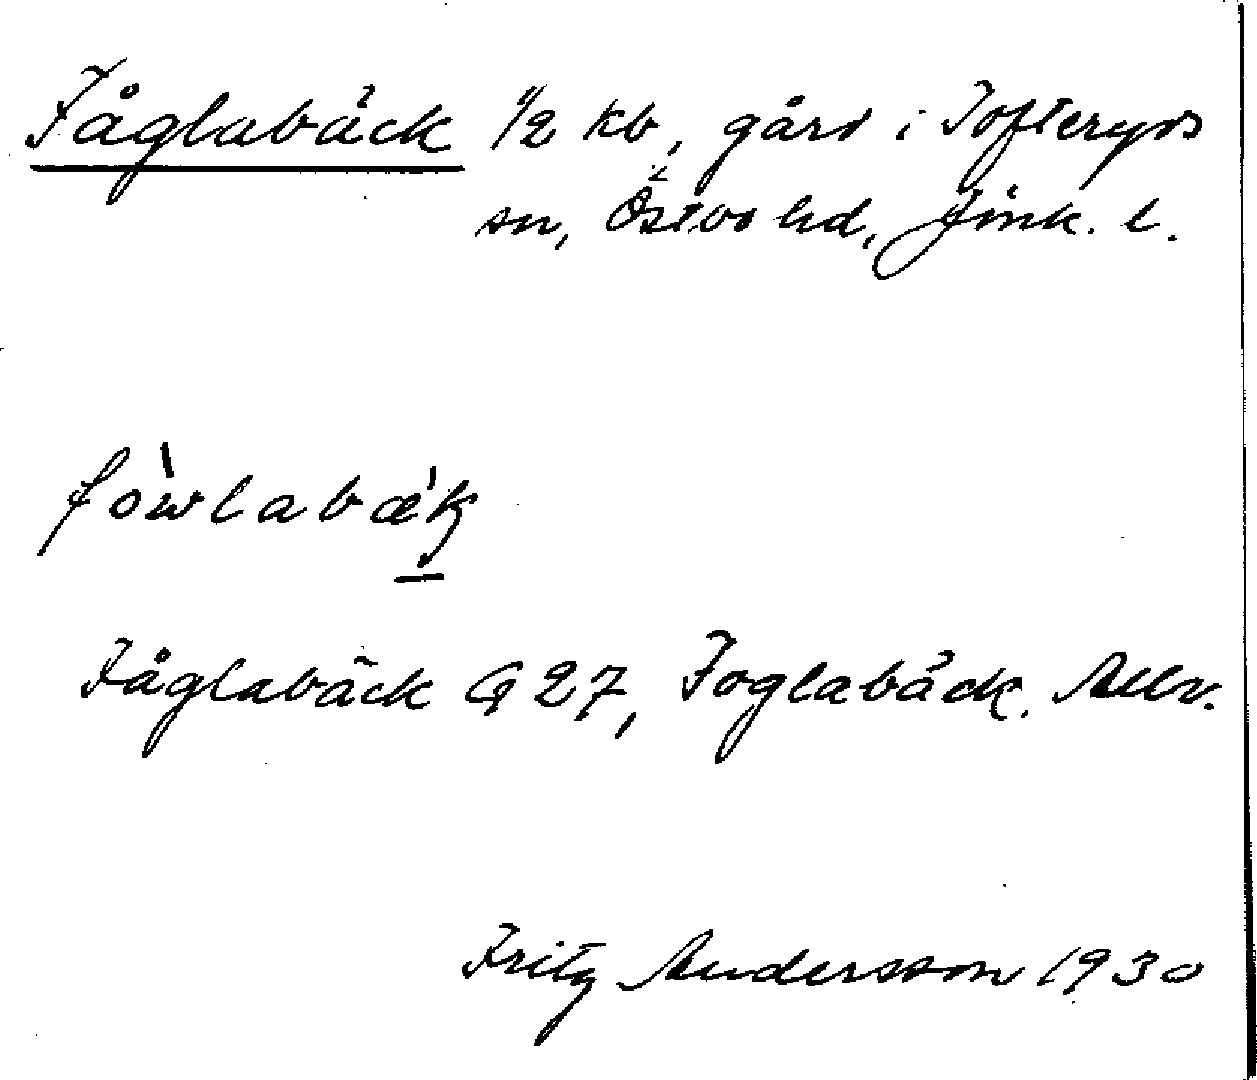 Fåglabäck 1/2 kb, gård i Tofteryds
sn, Östbo hd, Jönk. l.
fòwlabæ'k
Fåglabäck G 27, Foglabäck. Allv.
Fritz Andersson 1930